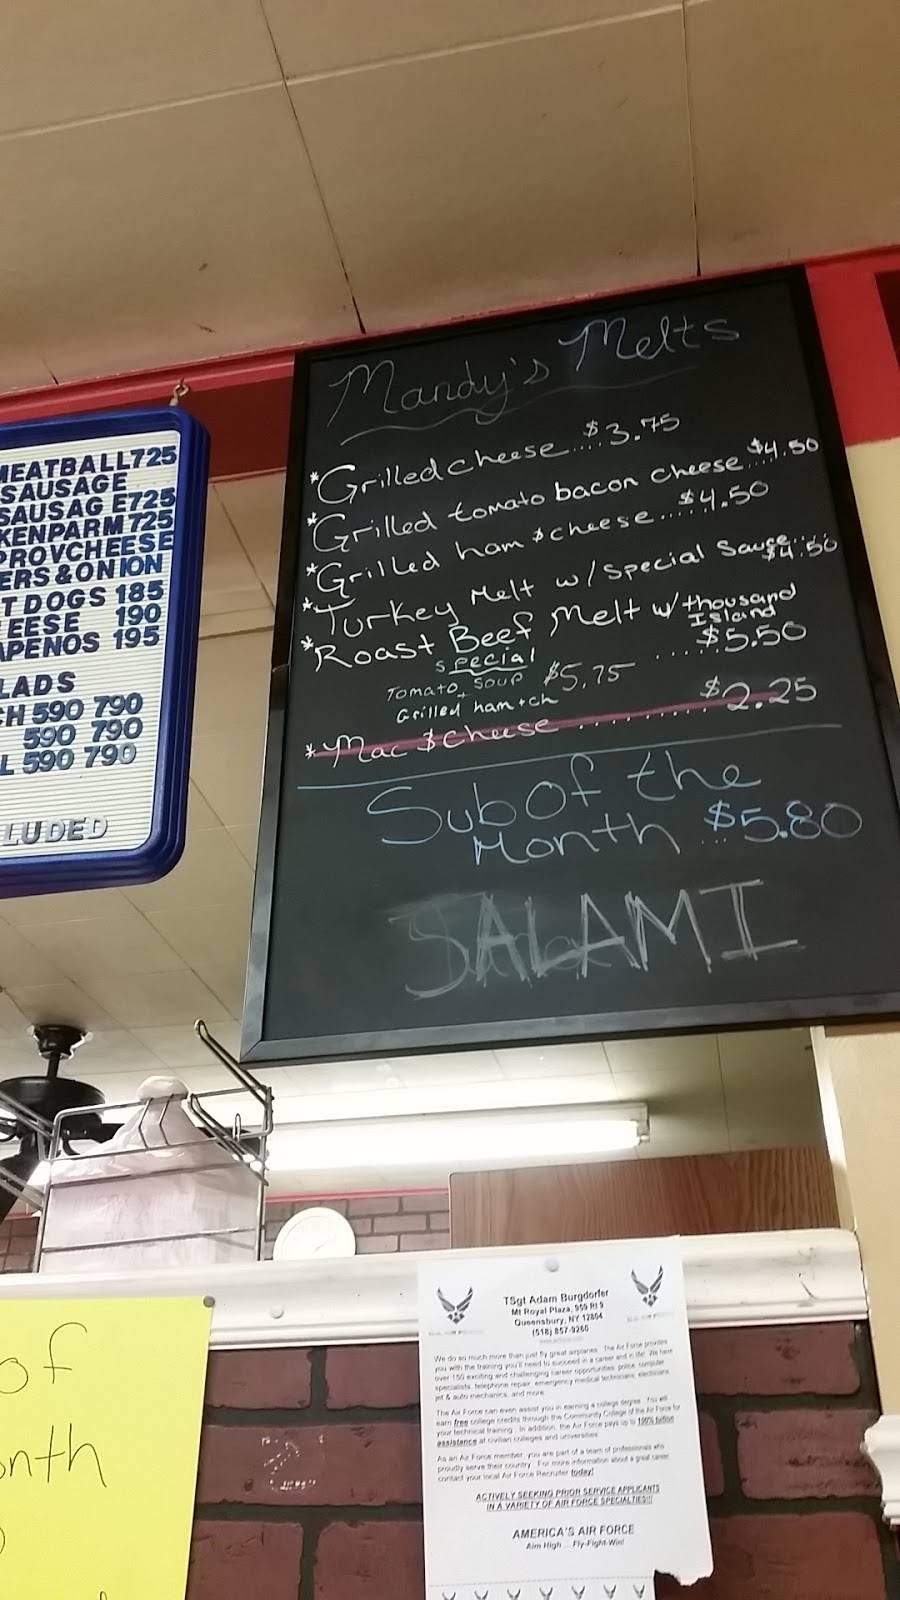 MEATBALL 725
SAUSAGE
SAUSAG E725
KENPARM 725
PROVCHEESE
ERS & ONION
T DOGS 185
EESE 190
APENOS 195
LADS
CH 590 790
590 790
L 590 790
LUDED
Mandy's Melts
*Grilled cheese....$3.75
*Grilled tomato bacon cheese....$4.50
*Grilled ham & cheese......$4.50
*Turkey Melt w/special Sauce....
$4.50
*Roast Beef Melt w/thousand
Island
.......$5.50
special
Tomato soup $5.75
+
Grilled ham + ch
*Mac & Cheese .........$2.25
Sub Of the
Month ...$5.80
SALAMI
of
onth
TSgt Adam Burgdorfer
Mt Royal Plaza, 959 Rt 9
Queensbury, NY 12804
(518) 857-9260
We do so much more than just fly great airplanes. The Air Force provides
you with the training you'll need to succeed in a career and in life. We have
over 150 exciting and challenging career opportunities: police, computer
specialists, telephone repair, emergency medical technicians, electricians,
jet & auto mechanics, and more.
The Air Force can even assist you in earning a college degree. You will
earn free college credits through the Community College of the Air Force for
your technical training. In addition, the Air Force pays up to 100% tuition
assistance at civilian colleges and universities.
As an Air Force member, you are part of a team of professionals who
proudly serve their country. For more information about a great career
contact your local Air Force Recruiter today!
ACTIVELY SEEKING PRIOR SERVICE APPLICANTS
IN A VARIETY OF AIR FORCE SPECIALTIES!!!
AMERICA'S AIR FORCE
Aim High ... Fly-Fight-Win!